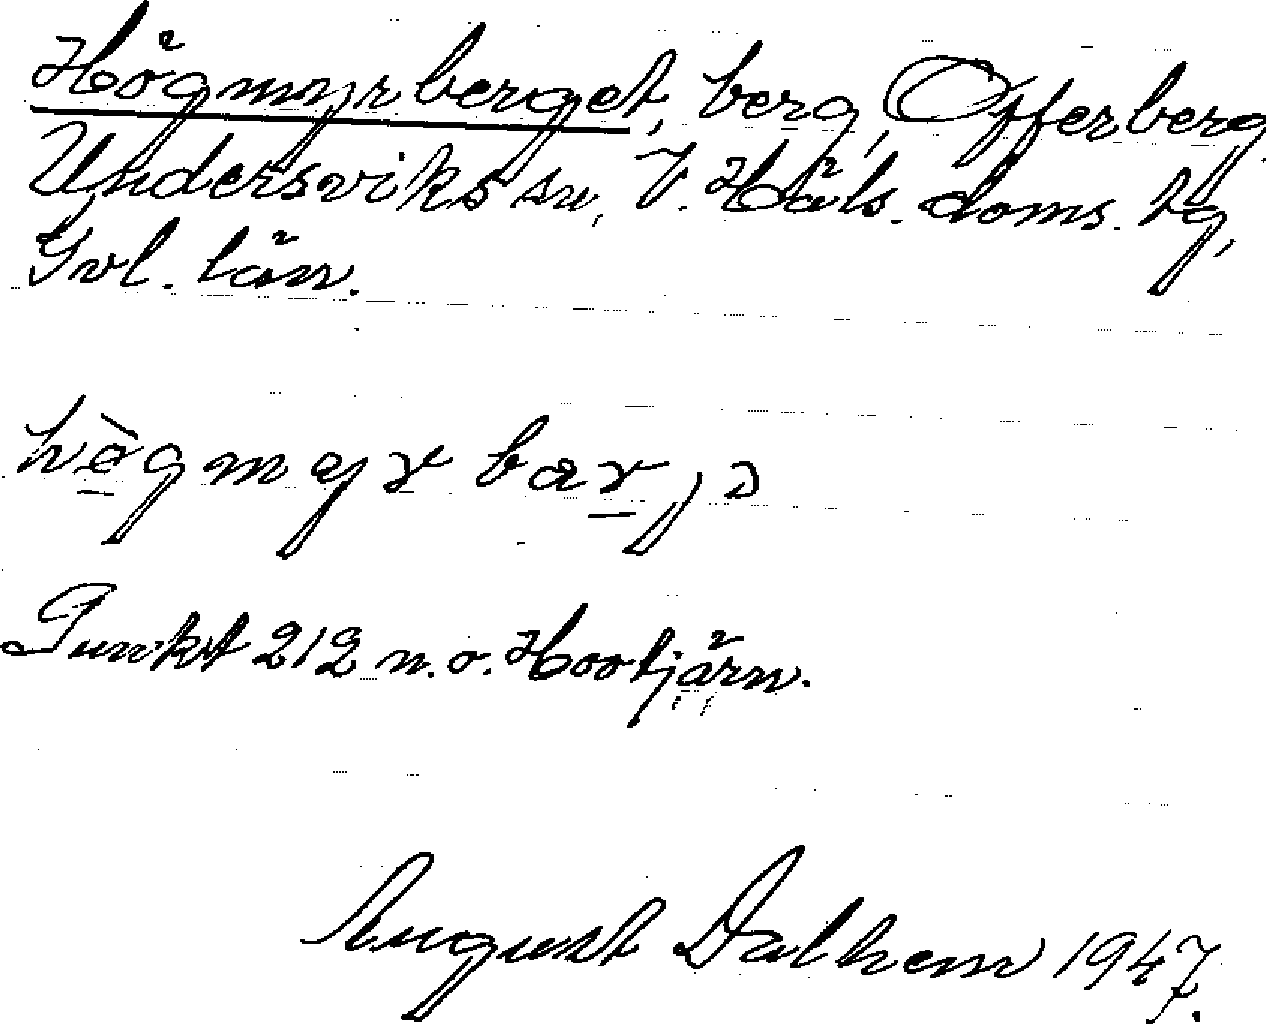 Högmyrberget, berg, Offerberg
Undersviks sn, V. Häls. doms. tg,
Gvl. län.
hògmyr bærjə
Punkt 212 n.o. Hootjärn.
August Dalhem 1947.